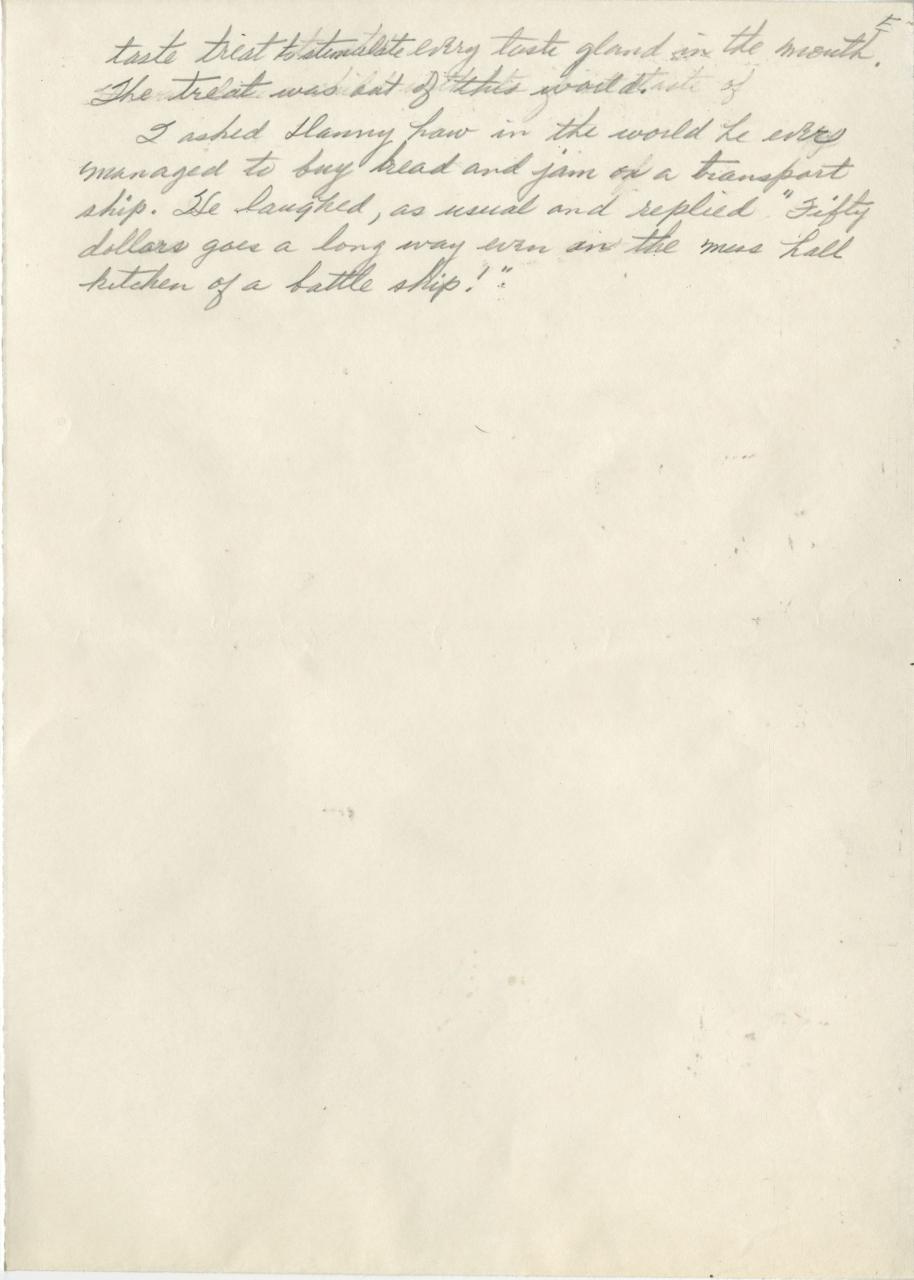 taste treat to stimulate every taste gland in the mouth.
The treat was out of this world.
I asked Danny how in the world he ever
managed to buy bread and jam on a transport
ship. He laughed, as usual and replied "Fifty
dollars goes a long way even in the mess hall
kitchen of a battle ship!"